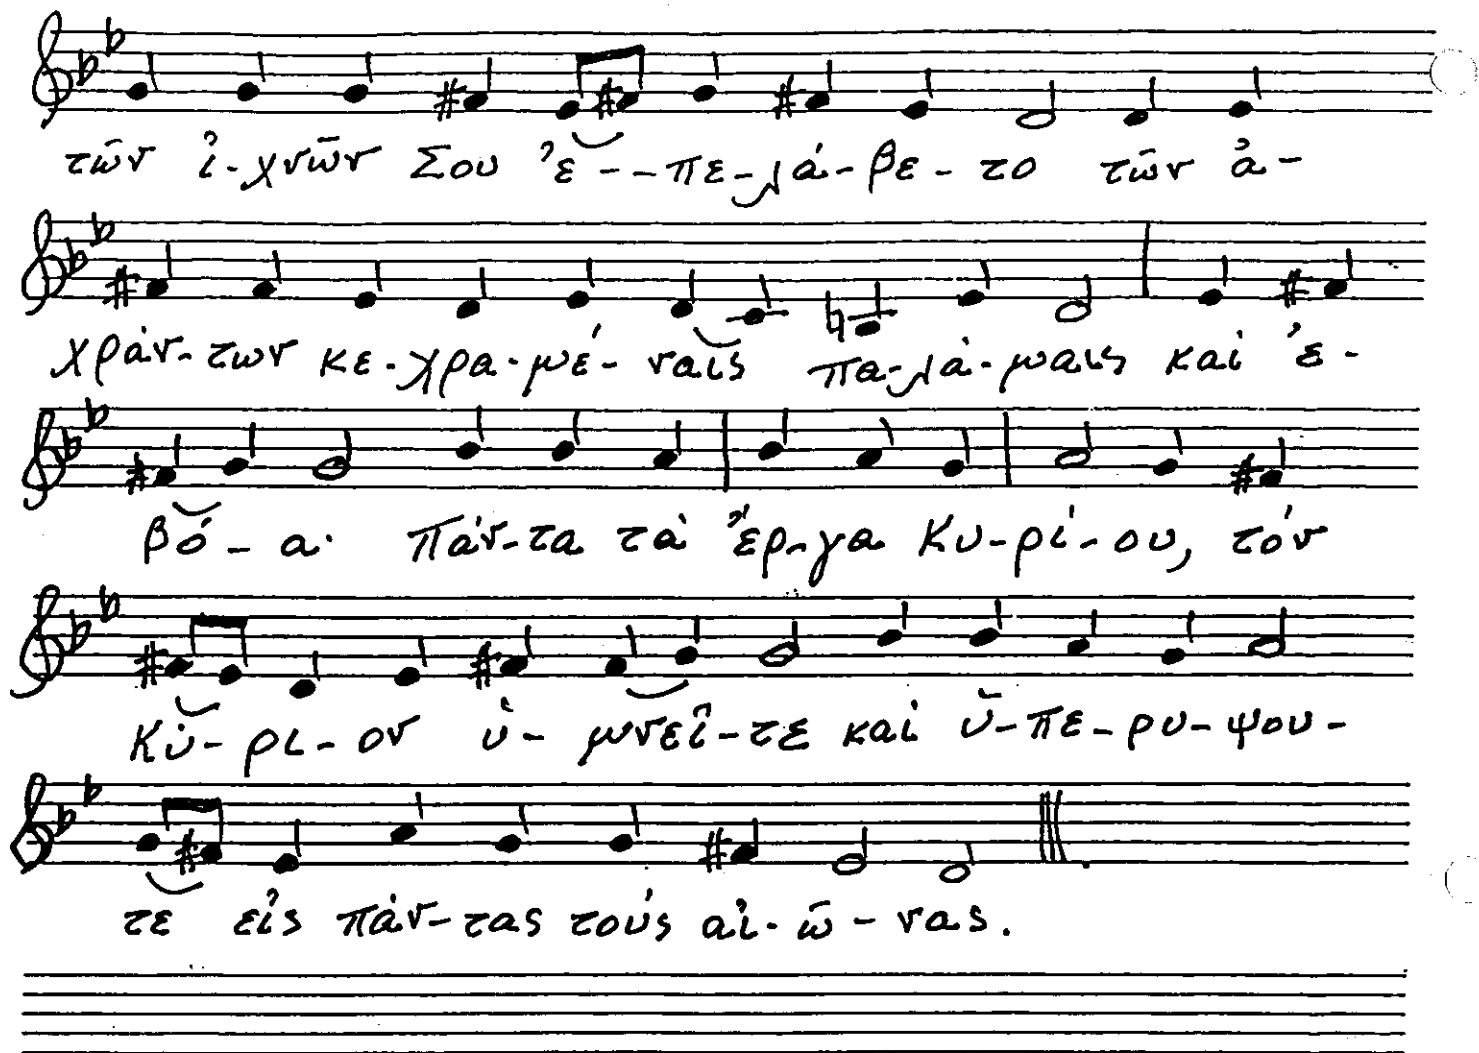 τῶν ἰ-χνῶν Σου ἐ--πε-λά-βε-το τῶν ἀ-
χράν-των κε-χρα-μέ-ναις πα-λά-μαις καί ἐ-
βό-α· Πάν-τα τά ἔρ-γα Κυ-ρί-ου, τόν
Κύ-ρι-ον ὑ-μνεῖ-τε καί ὑ-πε-ρυ-ψου-
τε εἰς πάν-τας τούς αἰ-ῶ-νας.